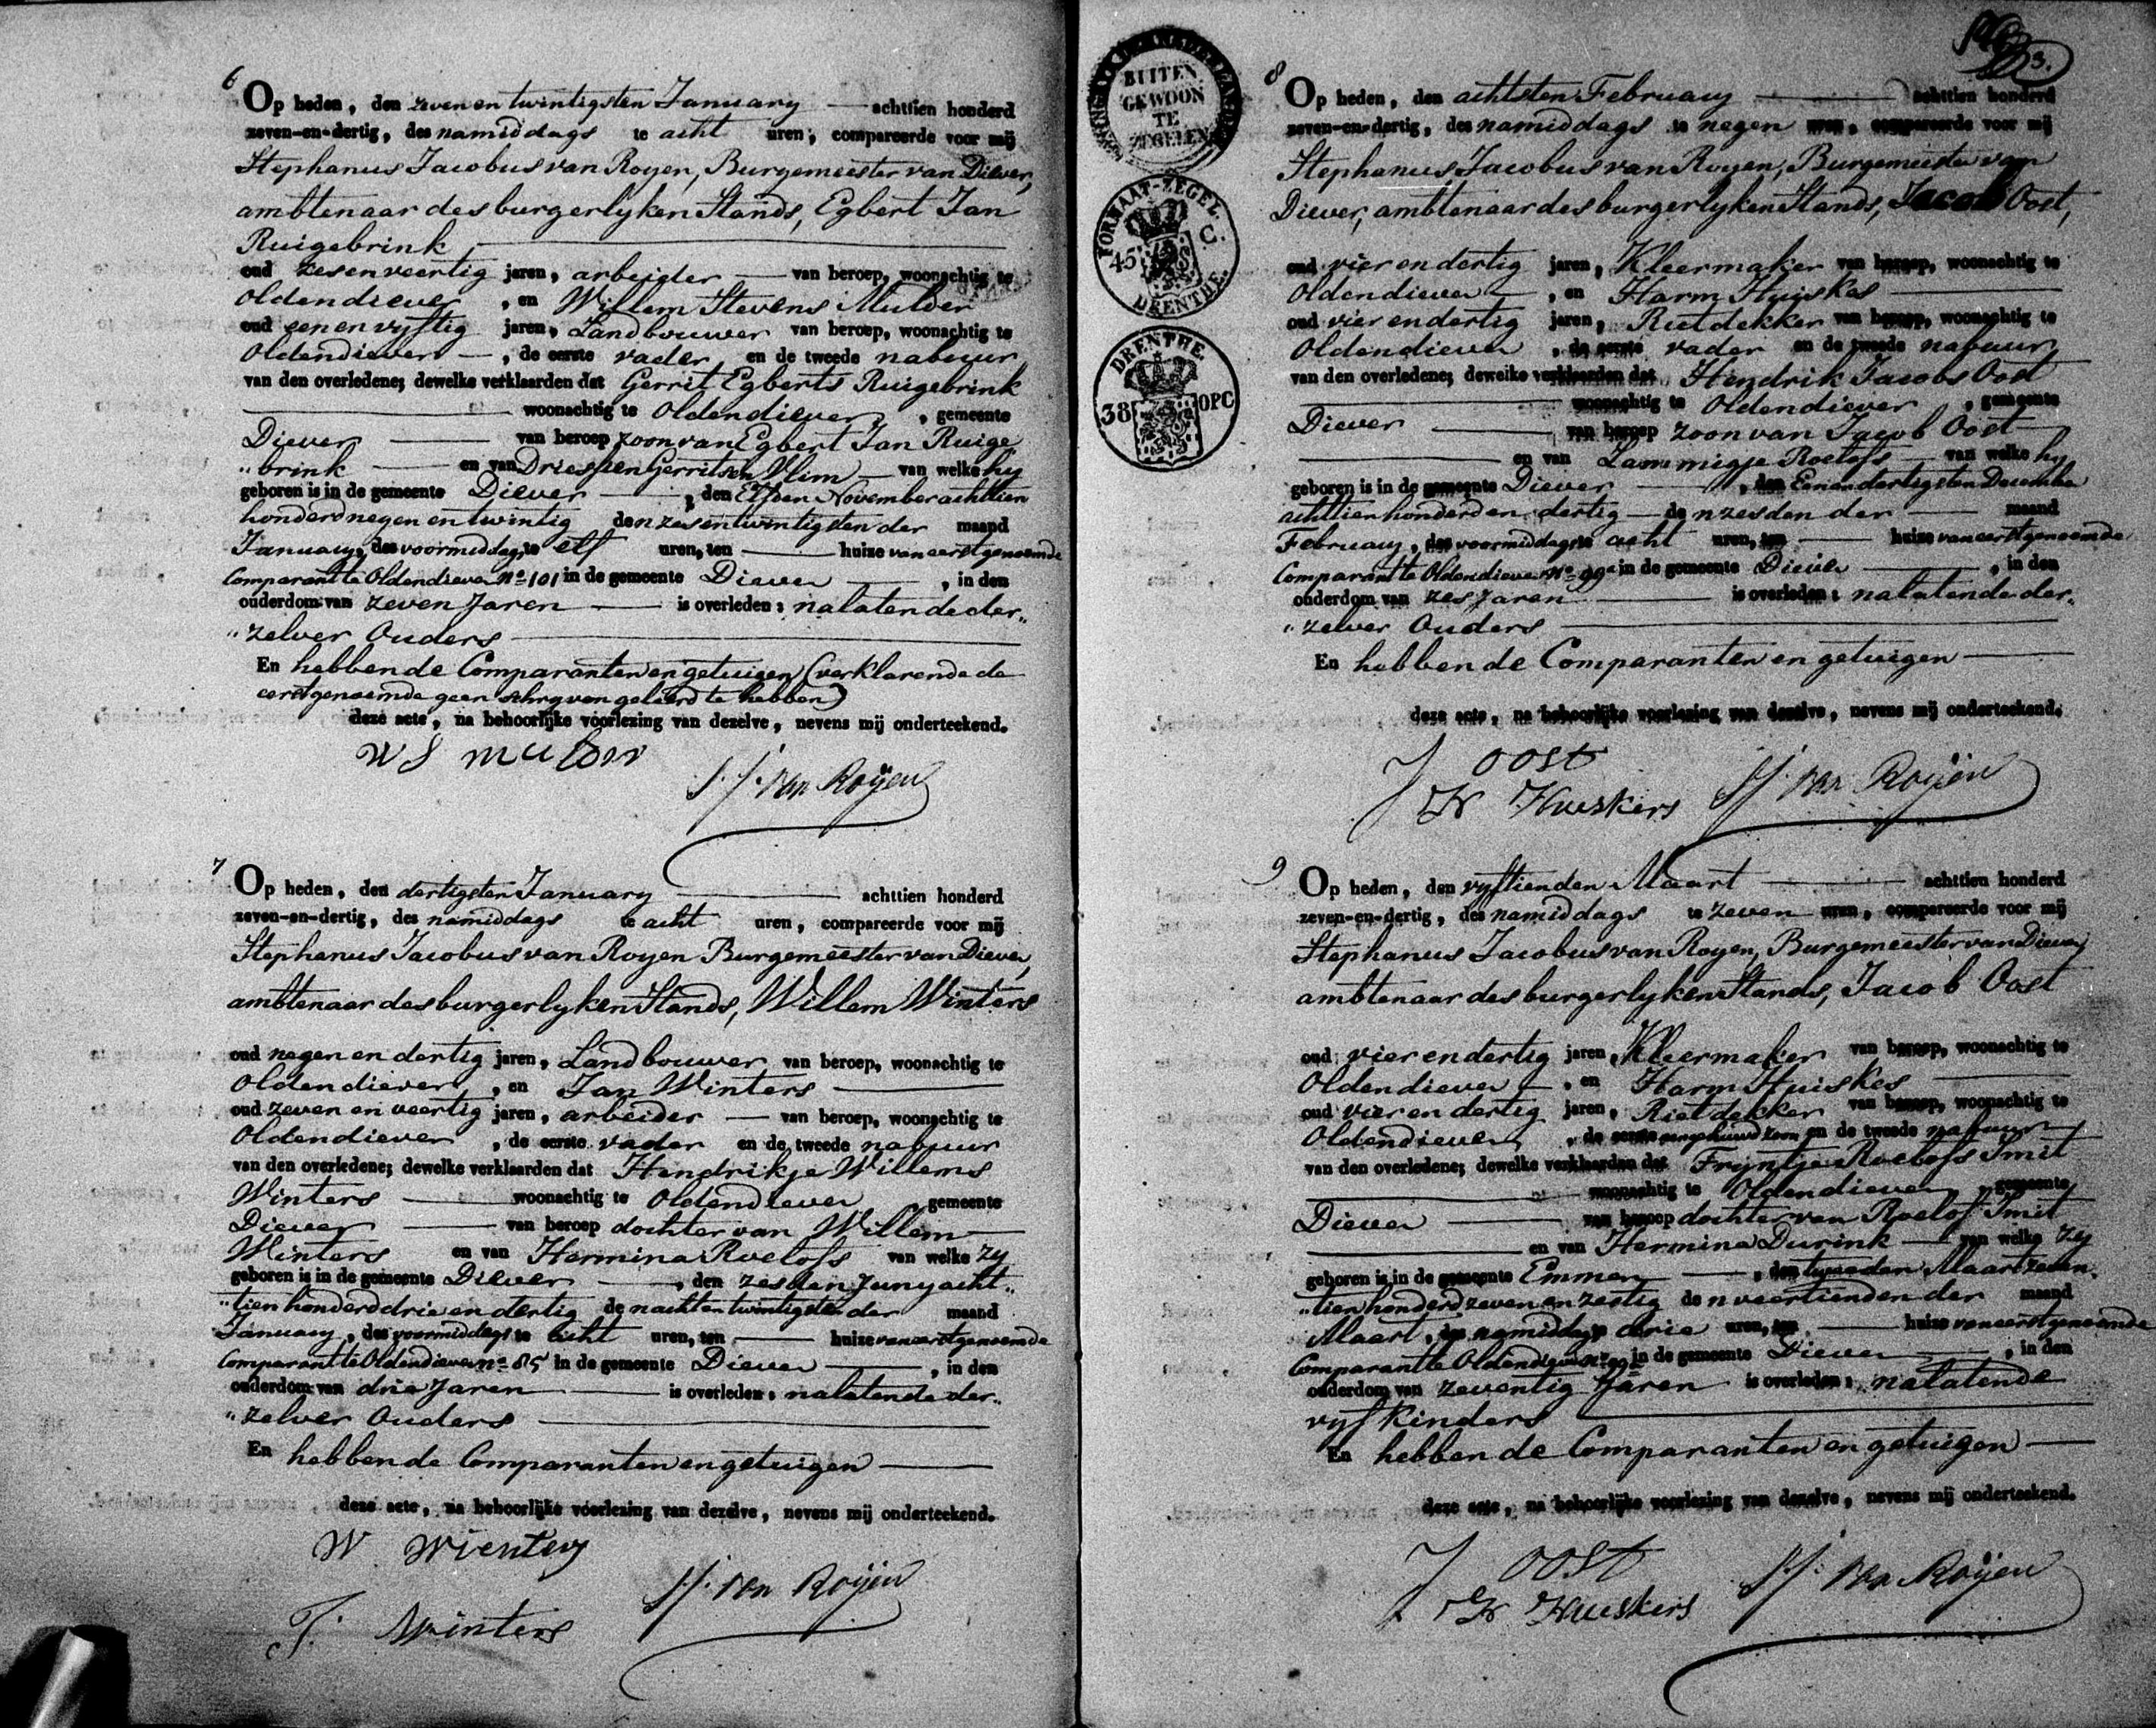 6
Op heden, den zeven en twintigsten January achttien honderd
zeven-en-dertig, des namiddags te acht uren, compareerde voor mij
Stephanus Jacobus van Royen, Burgemeester van Diever,
ambtenaar des burgerlyken Stands, Egbert Jan
Ruigebrink
oud zes en veertig jaren, arbeider van beroep, woonachtig te
Oldendiever, en Willem Stevens Mulder
oud een en vyftig jaren, Landbouwer van beroep, woonachtig te
Oldendiever, de eerste vader en de tweede nabuur
van den overledene; dewelke verklaarden dat Gerrit Egberts Ruigebrink
woonachtig te Oldendiever, gemeente
Diever van beroep zoon van Egbert Jan Ruige
"brink en van Driesjen Gerritsen Vlim van welke hy
geboren is in de gemeente Diever, den Elfden November achttien
honderd negen en twintig den zesentwintigsten der maand
January, des voormiddags te elf uren, ten huize van eerstgenoemde
Comparant te Oldendiever No 101 in de gemeente Diever, in den
ouderdom van zeven Jaren is overleden; nalatende der"
"zelver Ouders
En hebben de Comparanten en getuigen (verklarende de
eerstgenoemde geen schryven geleerd te hebben)
deze acte, na behoorlijke voorlezing van dezelve, nevens mij onderteekend.
W S mulder
S. J. van Roÿen
7
Op heden, den dertigsten January achttien honderd
zeven-en-dertig, des namiddags te acht uren, compareerde voor mij
Stephanus Jacobus van Royen Burgemeester van Diever,
ambtenaar des burgerlyken Stands, Willem Winters
oud negen en dertig jaren, Landbouwer van beroep, woonachtig te
Oldendiever, en Jan Winters
oud zeven en veertig jaren, arbeider van beroep, woonachtig te
Oldendiever, de eerste vader en de tweede nabuur
van den overledene; dewelke verklaarden dat Hendrikje Willems
Winters woonachtig te Oldendiever gemeente
Diever van beroep dochter van Willem
Winters en van Hermina Roelofs van welke zy
geboren is in de gemeente Diever, den zesden Juny acht"
"tien honderd drie en dertig den acht en twintigsten der maand
January, des voormiddags te acht uren, ten huize van eerstgenoemde
Comparant te Oldendiever No 85 in de gemeente Diever, in den
ouderdom van drie Jaren is overleden; nalatende der"
"zelver Ouders
En hebben de Comparanten en getuigen
deze acte, na behoorlijke voorlezing van dezelve, nevens mij onderteekend.
W wienters
S. J. van Roÿen
J. Winters
BUITEN
GEWOON
TE
ZEGELEN
FORMAAT-ZEGEL.
45 C.
DRENTHE.
DRENTHE.
38 OPC
3.
8
Op heden, den achtsten February achttien honderd
zeven-en-dertig, des namiddags te negen uren, compareerde voor mij
Stephanus Jacobus van Royen, Burgemeester van
Diever, ambtenaar des burgerlyken Stands, Jacob Oost,
oud vier en dertig jaren, Kleermaker van beroep, woonachtig te
Oldendiever, en Harm Huiskes
oud vier en dertig jaren, Rietdekker van beroep, woonachtig te
Oldendiever, de eerste vader en de tweede nabuur
van den overledene; dewelke verklaarden dat Hendrik Jacobs Oost
woonachtig te Oldendiever, gemeente
Diever van beroep zoon van Jacob Oost
en van Lammigje Roelofs van welke hy
geboren is in de gemeente Diever, den Eenendertigsten December
achttien honderd en dertig den zesden der maand
February, des voormiddags te acht uren, ten huize van eerstgenoemde
Comparant te Oldendiever No 99a in de gemeente Diever, in den
ouderdom van zes Jaren is overleden; nalatende der"
"zelver Ouders
En hebben de Comparanten en getuigen
deze acte, na behoorlijke voorlezing van dezelve, nevens mij onderteekend.
J OOST
S. J. van Roÿen
H Huiskers
9
Op heden, den vyftienden Maart achttien honderd
zeven-en-dertig, des namiddags te zeven uren, compareerde voor mij
Stephanus Jacobus van Royen, Burgemeester van Diever
ambtenaar des burgerlyken Stands, Jacob Oost
oud vier en dertig jaren, Kleermaker van beroep, woonachtig te
Oldendiever, en Harm Huiskes
oud vier en dertig jaren, Rietdekker van beroep, woonachtig te
Oldendiever, de eerste aangehuwd zoon en de tweede nabuur
van den overledene; dewelke verklaarden dat Fryntje Roelofs Smit
woonachtig te Oldendiever, gemeente
Diever van beroep dochter van Roelof Smit
en van Hermina Durink van welke zy
geboren is in de gemeente Emmen, den tweeden Maart zeven"
"tien honderd zeven en zestig den veertienden der maand
Maart, des namiddags drie uren, ten huize van eerstgenoemde
Comparant te Oldendiever No 99a in de gemeente Diever, in den
ouderdom van zeventig Jaren is overleden; nalatende
vyf Kinders
En hebben de Comparanten en getuigen
deze acte, na behoorlijke voorlezing van dezelve, nevens mij onderteekend.
J OOST
S. J. van Roÿen
H Huiskers